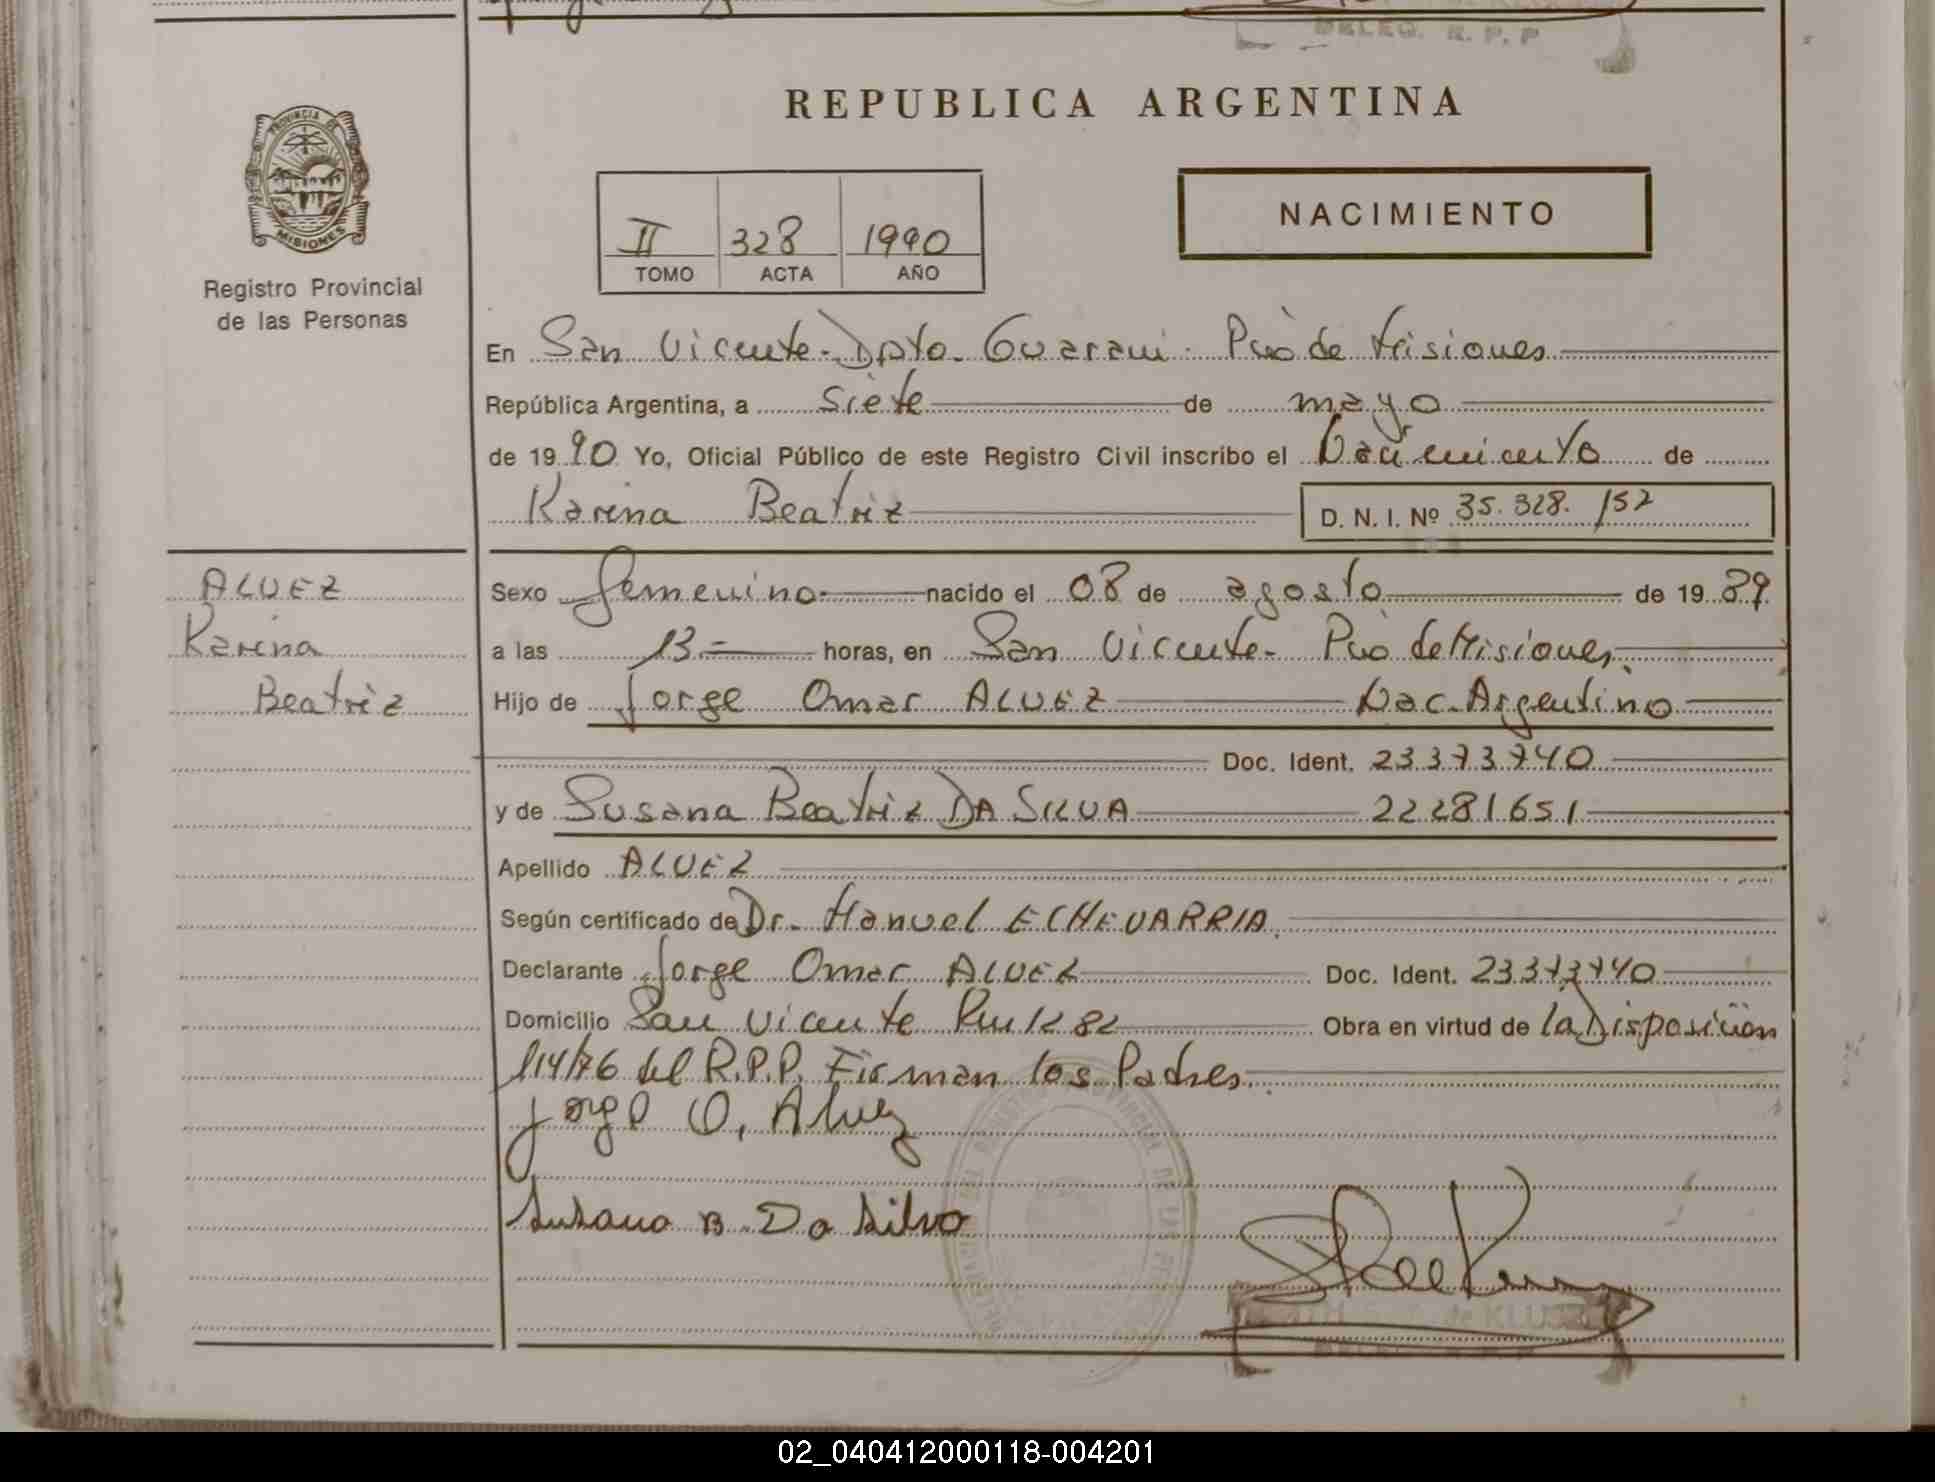 DELEG. R. P. P
REPUBLICA ARGENTINA
PROVINCIA DE
MISIONES
Registro Provincial
de las Personas
II 328 1990
TOMO ACTA AÑO
NACIMIENTO
En San Vicente - Dpto. Guarani - Pcia de Misiones
República Argentina, a siete de mayo
de 1990 Yo, Oficial Público de este Registro Civil inscribo el Nacimiento de
Karina Beatriz D. N. I. Nº 35.328.152
ALVEZ
Karina
Beatriz
Sexo femenino nacido el 08 de agosto de 1989
a las 13 horas, en San Vicente - Pcia de Misiones
Hijo de Jorge Omar ALVEZ Nac. Argentino
Doc. Ident. 23373740
y de Susana Beatriz DA SILVA 22281651
Apellido ALVEZ
Según certificado de Dr. Manuel ECHEVARRIA
Declarante Jorge Omar ALVEZ Doc. Ident. 23373740
Domicilio San Vicente Km 1282 Obra en virtud de la Disposición
114/76 del R.P.P. Firman los Padres
Jorge O. Alvez
Susana B. Da Silva
de KLU
02_040412000118-004201